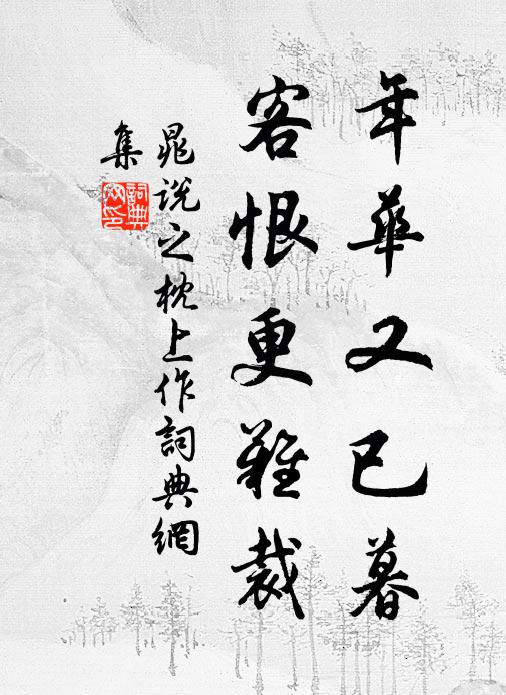 年華又已暮
客恨更難裁
晁説之枕上作詞典網
集
詞典網印